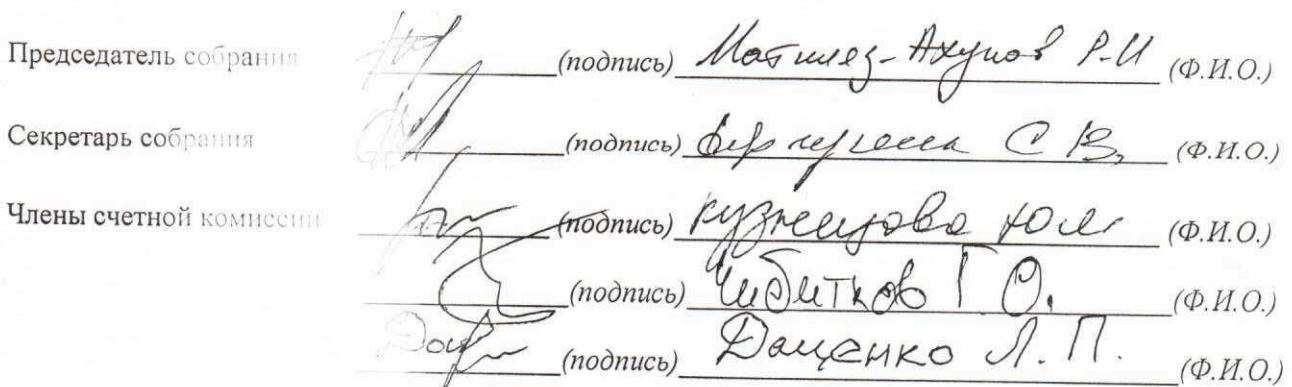 Председатель собрания (подпись) Р.И (Ф.И.О.)
Секретарь собрания (подпись) С В, (Ф.И.О.)
Члены счетной комиссии (подпись) Кузнецова Ю.М (Ф.И.О.)
(подпись) Чибитков Г О. (Ф.И.О.)
(подпись) Даценко Л. П. (Ф.И.О.)